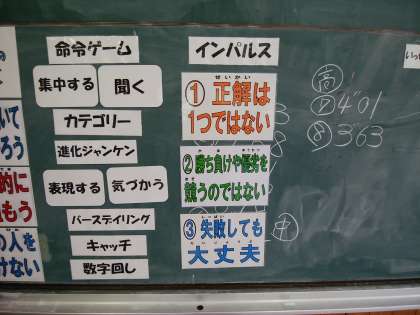 命令ゲーム
集中する
聞く
カテゴリー
進化ジャンケン
表現する
気づかう
バースデイリング
キャッチ
数字回し
インパルス
せいかい
① 正解は
1つではない
② 勝ち負けや優劣を
競うのではない
③ 失敗しても
大丈夫
高
⑦ 4'01
⑧ 3'63
いて
ろう
的に
もう
の人を
けない